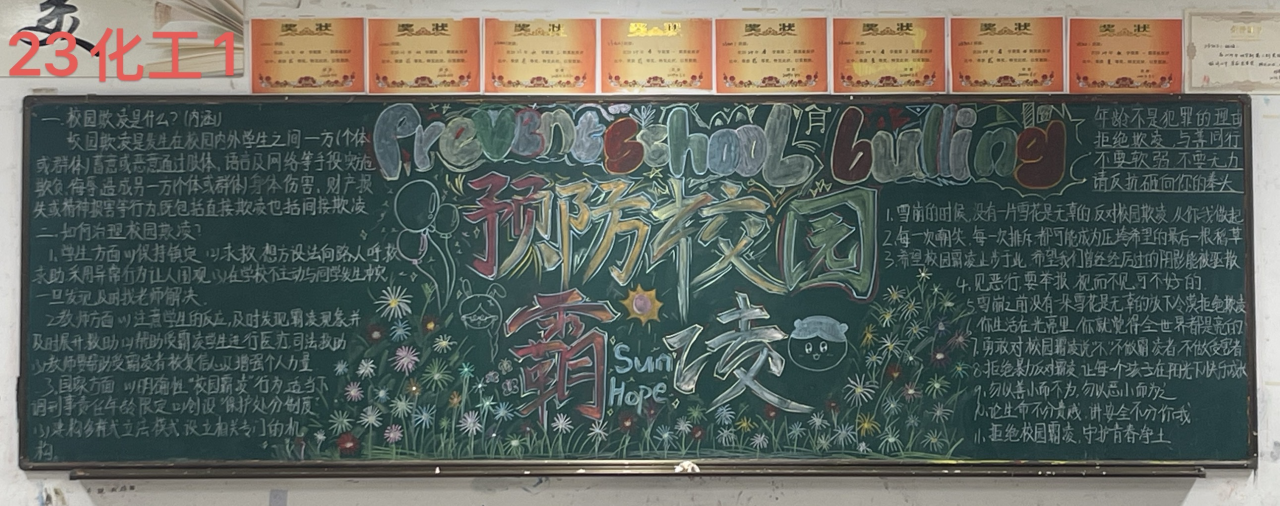 23化工1
奖状
奖状
奖状
奖状
奖状
奖状
奖状
奖状
Prevent school bulling
预防校园
霸凌
Sun
Hope
一.校园欺凌是什么？(内涵)
校园欺凌是发生在校园内外学生之间一方(个体
或群体)蓄意或恶意通过肢体、语言及网络等手段实施
欺负、侮辱造成另一方(个体或群体)身体伤害、财产损
失或精神损害等行为既包括直接欺凌也包括间接欺凌
二.如何治理校园欺凌?
1.学生方面(1)保持镇定 (2)求救,想方设法向路人呼救
求助采用异常行为让人围观.(3)在学校不主动与同学发生冲突
一旦发现及时找老师解决.
2.教师方面(1)注意学生的反应,及时发现霸凌现象并
及时展开救助(2)帮助受霸凌学生进行医疗司法救助
3.国家方面(1)明确性"校园霸凌"行为适当下
调刑事责任年龄限定(2)创设"保护处分制度
构.
年龄不是犯罪的理由
拒绝欺凌,与善同行
不要软弱,不要无力
请反抗砸向你的拳头
1.雪崩的时候,没有一片雪花是无辜的反对校园欺凌从你我做起
2.每一次嘲笑,每一次排斥都可能成为压垮希望的最后一根稻草
4.见恶行要举报,视而不见可不好的
5.雪崩之前没有一朵雪花是无辜的放下心态拒绝欺凌
你生活在光亮里,你就觉得全世界都是亮的
7.勇敢对校园霸凌说"不"不做霸凌者,不做受害者
8.拒绝暴力反对霸凌,让每个孩子在阳光下快乐成长
9.勿以善小而不为,勿以恶小而为之
11.拒绝校园霸凌,守护青春净土